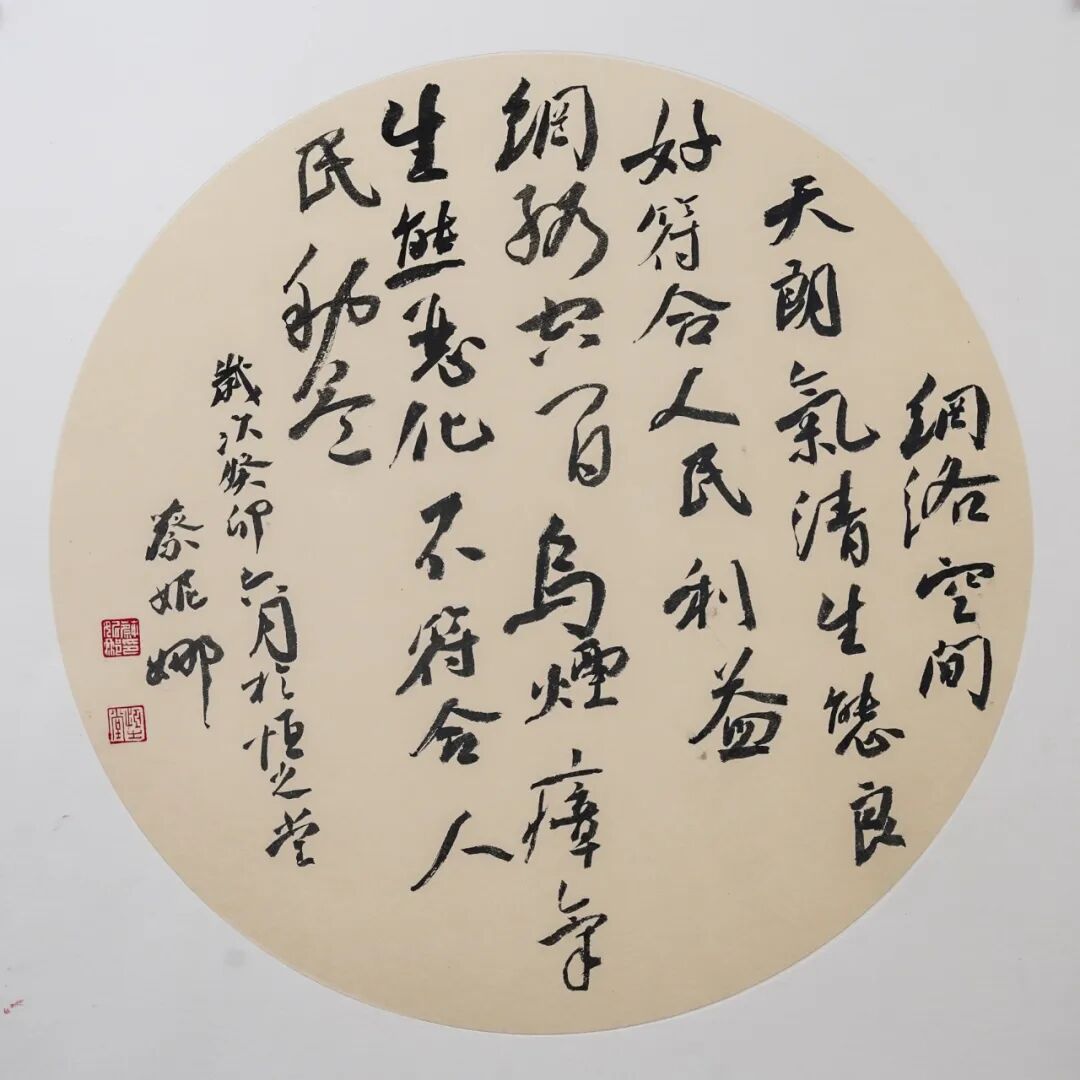 網洛空间
天朗氣清生態良
好符合人民利益
網絡空间烏煙瘴气
生態惡化不符合人
民利益
歲次癸卯六月於恒之堂
蔡妮娜